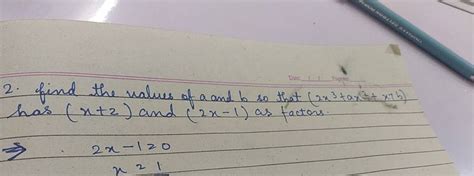 2. find the values of a and b so that (2x³+ax²+x+b)
has (x+2) and (2x-1) as factors.
⇒ 2x-1=0
x = 1